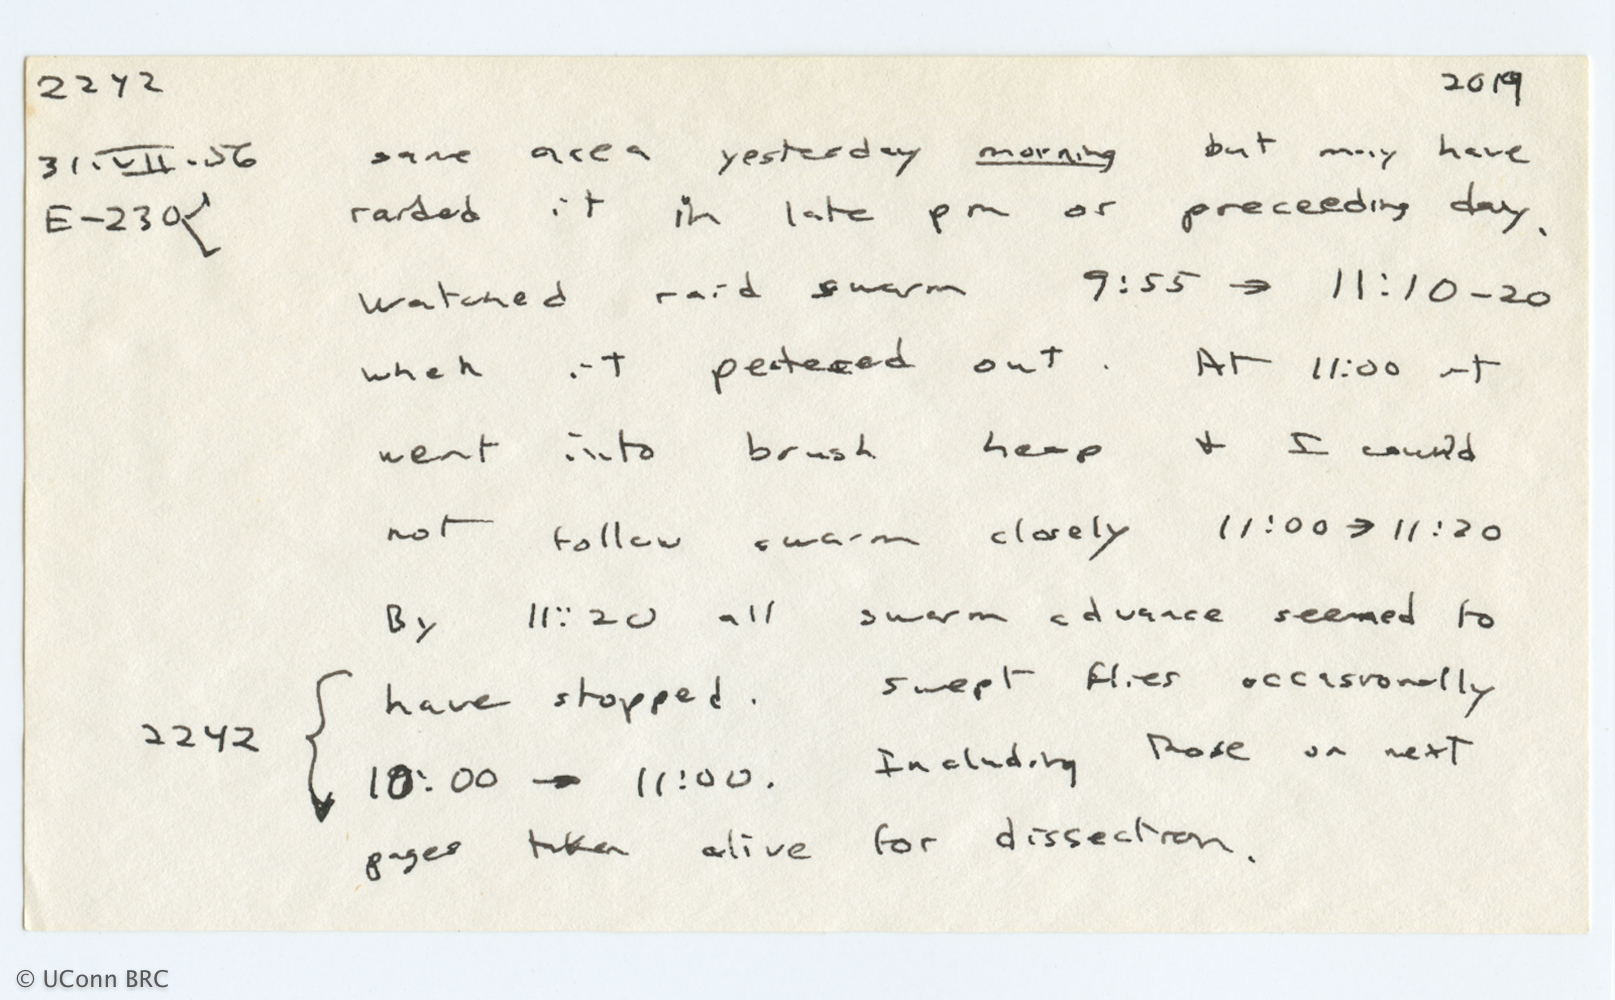 2242 2019
31.VII.56 same area yesterday morning but may have
E-230 raided it in late pm or preceeding day.
Watched raid swarm 9:55 → 11:10-20
when it petered out. At 11:00 it
went into brush heap & I could
not follow swarm closely 11:00 → 11:20
By 11:20 all swarm advance seemed to
have stopped. Swept flies occasionally
2242
10:00 → 11:00. Including those on next
pages taken alive for dissection.
© UConn BRC